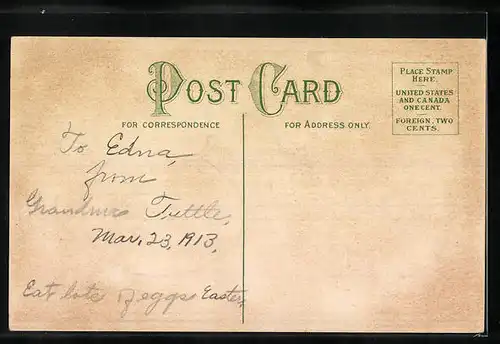 POST CARD
FOR CORRESPONDENCE
FOR ADDRESS ONLY.
PLACE STAMP
HERE.
UNITED STATES
AND CANADA
ONE CENT.
FOREIGN, TWO
CENTS.
To Edna,
from
Grandma Tuttle,
Mar, 23, 1913,
Eat lots of eggs Easter,